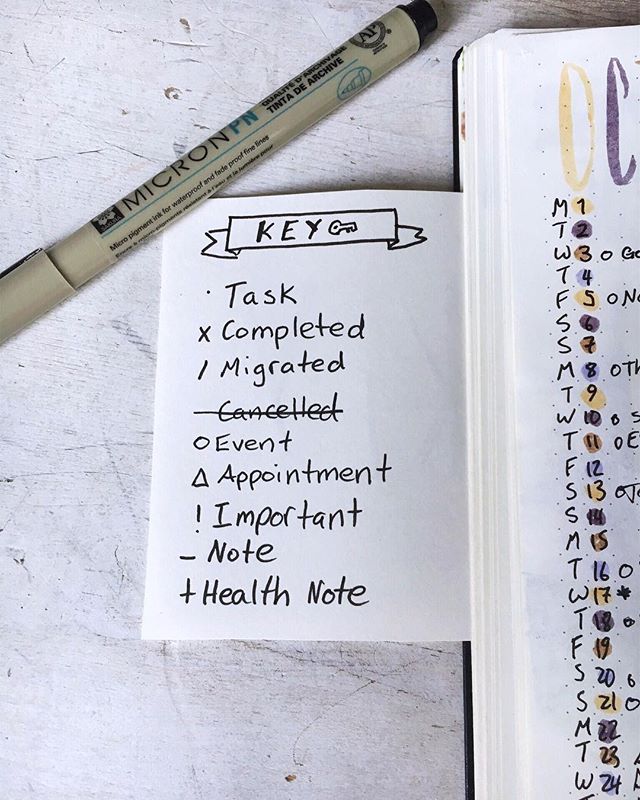 MICRON PN
QUALITÉ D'ARCHIVAGE
TINTA DE ARCHIVE
AP
Micro pigment ink for waterproof and fade proof fine lines
KEY
· Task
x Completed
/ Migrated
— Cancelled
O Event
Δ Appointment
! Important
– Note
+ Health Note
OC
M 1
T 2
W 3 o
T 4
F 5 o
S 6
S 7
M 8 o
T 9
W 10 o
T 11 o
F 12
S 13 o
S 14
M 15
T 16 o
W 17 *
T 18 o
F 19
S 20 o
S 21 o
M 22
T 23 Δ
W 24